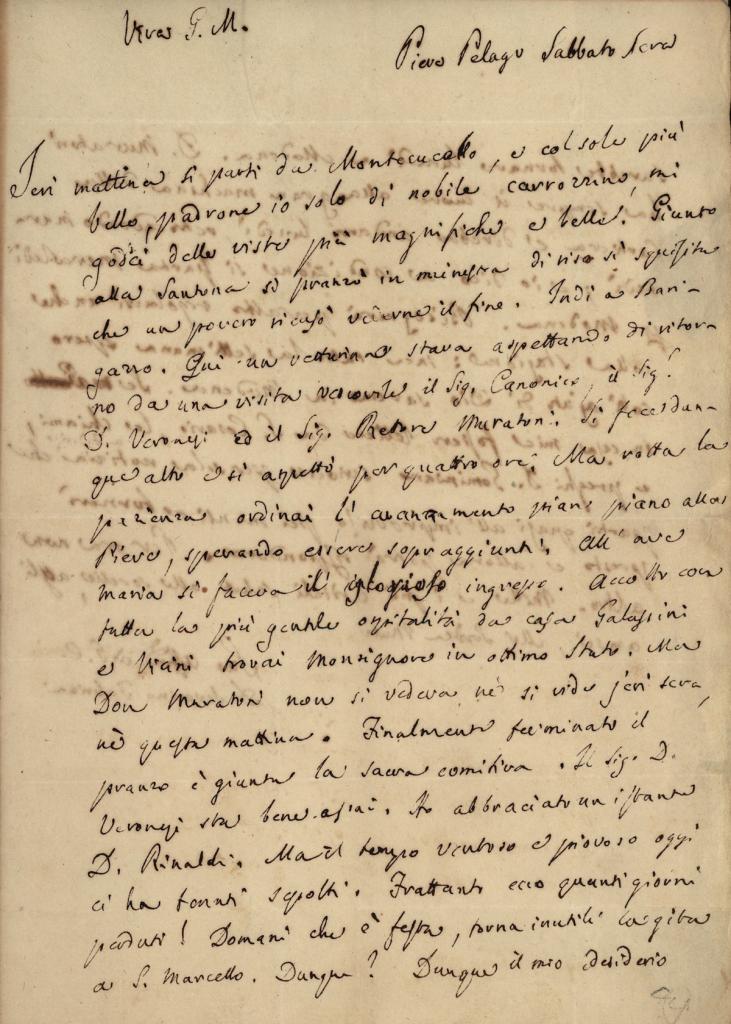 Viva G. M.
Pieve Pelago Sabbato sera
Jeri mattina si partì da Montecucallo, e col sole più
bello, padrone io solo di nobile carrozzino, mi
godei delle viste più magnifiche e belle. Giunto
alla Santona si pranzò in minestra di riso sì squisita
che un povero ricusò vederne il fine. Indi a Bari-
gazzo. Qui un vetturino stava aspettando di ritor-
no da una visita vescovile il Sig. Canonico, il Sig.
D. Veronesi ed il Sig. Rettore Muratori. Si fece dun-
que alto e si aspettò per quattro ore. Ma rotta la
pazienza ordinai l'avanzamento piano piano alla
Pieve, sperando essere sopraggiunti. All'ave
maria si faceva il glorioso ingresso. Accolto con
tutta la più gentile ospitalità da casa Galassini
e Vicini trovai Monsignore in ottimo stato. Ma
Don Muratori non si vedeva nè si vide jeri sera,
nè questa mattina. Finalmente terminato il
pranzo è giunta la sacra comitiva. Il Sig. D.
Veronesi sta bene assai. Ho abbracciato un istante
D. Rinaldi. Ma il tempo ventoso e piovoso oggi
ci ha tenuti sepolti. Frattanto ecco quanti giorni
perduti! Domani che è festa, torna inutile la gita
a S. Marcello. Dunque? Dunque il mio desiderio